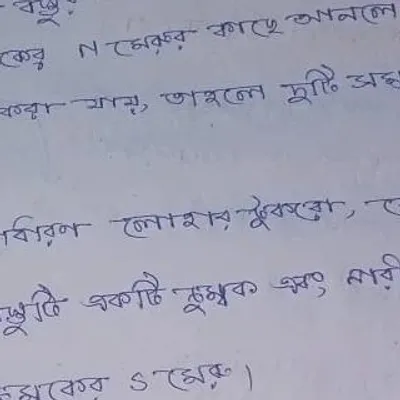 বস্তু?
কের N মেরুর কাছে আনলে
করা যায়, তাহলে দুটি
ধারন লোহার টুকরো,
একটি চুম্বক এবং
চুম্বকের S মেরু।